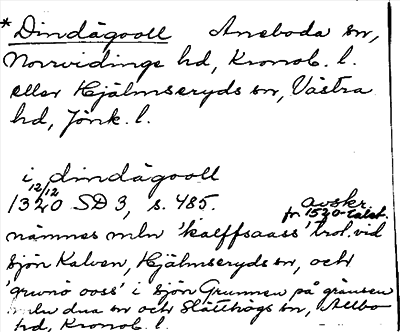 *Dindågooll Aneboda sn,
Norrvidinge hd, Kronob. l.
eller Hjälmseryds sn, Västra
hd, Jönk. l.
i dindågooll
12/12
1320 SD 3, s. 485. avskr.
fr. 1520-talet.
nämnes mln 'kalffsaass' trol. vid
sjön Kalven, Hjälmseryds sn, och
ooss' i sjön Grunnen på gränsen
mln dna sn och Slätthögs sn, Allbo
hd, Kronob. l.